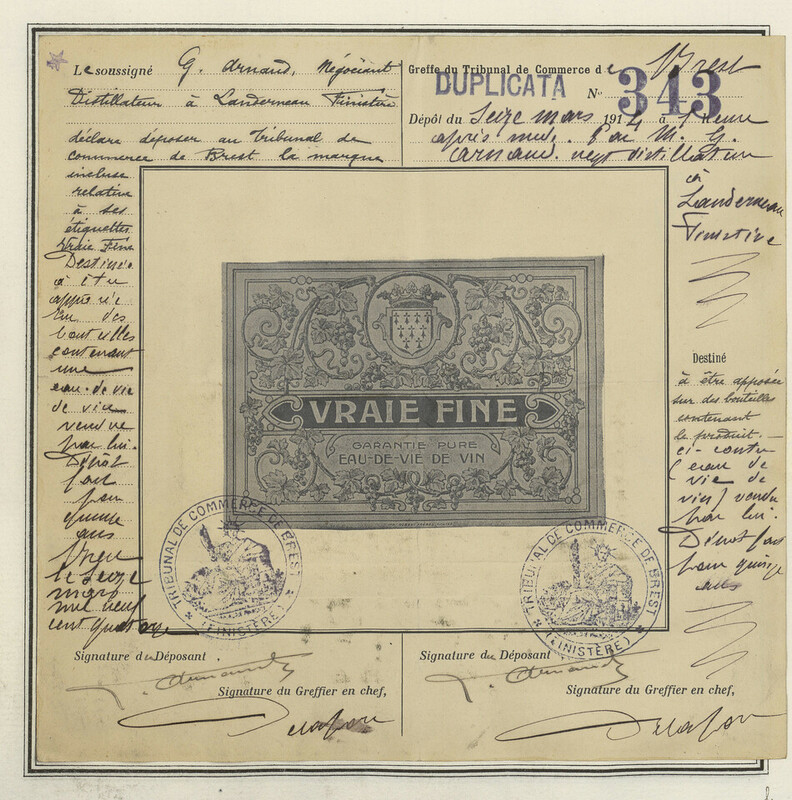 Le soussigné G. Arnaud, Négociant
Distillateur à Landerneau Finistère
déclare déposer au Tribunal de
commerce de Brest la marque
incluse
relative
à ses
étiquettes
Vraie Fine
Destinée
à être
apposée
sur des
bouteilles
contenant
une
eau-de-vie
de vin
vendue
par lui.
Dépôt
fait
pour
quinze
ans
Brest
le seize
mars
mil neuf
cent quatorze
Greffe du Tribunal de Commerce de Brest
DUPLICATA
No 343
Dépôt du Seize mars 1914 à 1 heure
après midi. Par M. G.
Arnaud. negt distillateur
à
Landerneau
Finistère
Destiné
à être apposée
sur des bouteilles
contenant
le produit.
ci-contre
(eau de
vie de
vin) vendu
par lui.
Dépôt fait
pour quinze
ans
VRAIE FINE
GARANTIE PURE
EAU-DE-VIE DE VIN
TRIBUNAL DE COMMERCE DE BREST
(FINISTÈRE)
TRIBUNAL DE COMMERCE DE BREST
(FINISTÈRE)
Signature du Déposant
G. Arnaud
Signature du Greffier en chef,
Delafon
Signature du Déposant
G. Arnaud
Signature du Greffier en chef,
Delafon